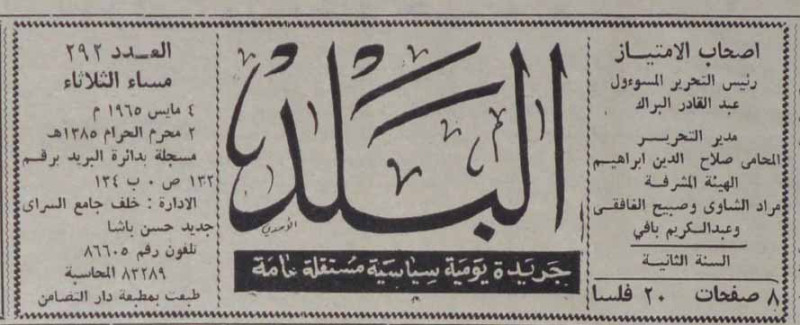 اصحاب الامتياز
رئيس التحرير المسوءول
عبد القادر البراك
مدير التحرير
المحامى صلاح الدين ابراهيم
الهيئة المشرفة
مراد الشاوى وصبيح الغافقى
وعبدالكريم بافي
السنة الثانية
٨ صفحات ٢٠ فلسا
البلد
جريدة يومية سياسية مستقلة عامة
العدد ٢٩٢
مساء الثلاثاء
٤ مايس ١٩٦٥ م
٢ محرم الحرام ١٣٨٥هـ
مسجلة بدائرة البريد برقم
١٣٢ ص ٠ ب ١٣٤
الادارة : خلف جامع السراى
جديد حسن باشا
تلفون رقم ٨٦٦٠٥
٨٣٢٨٩ المحاسبة
طبعت بمطبعة دار التضامن